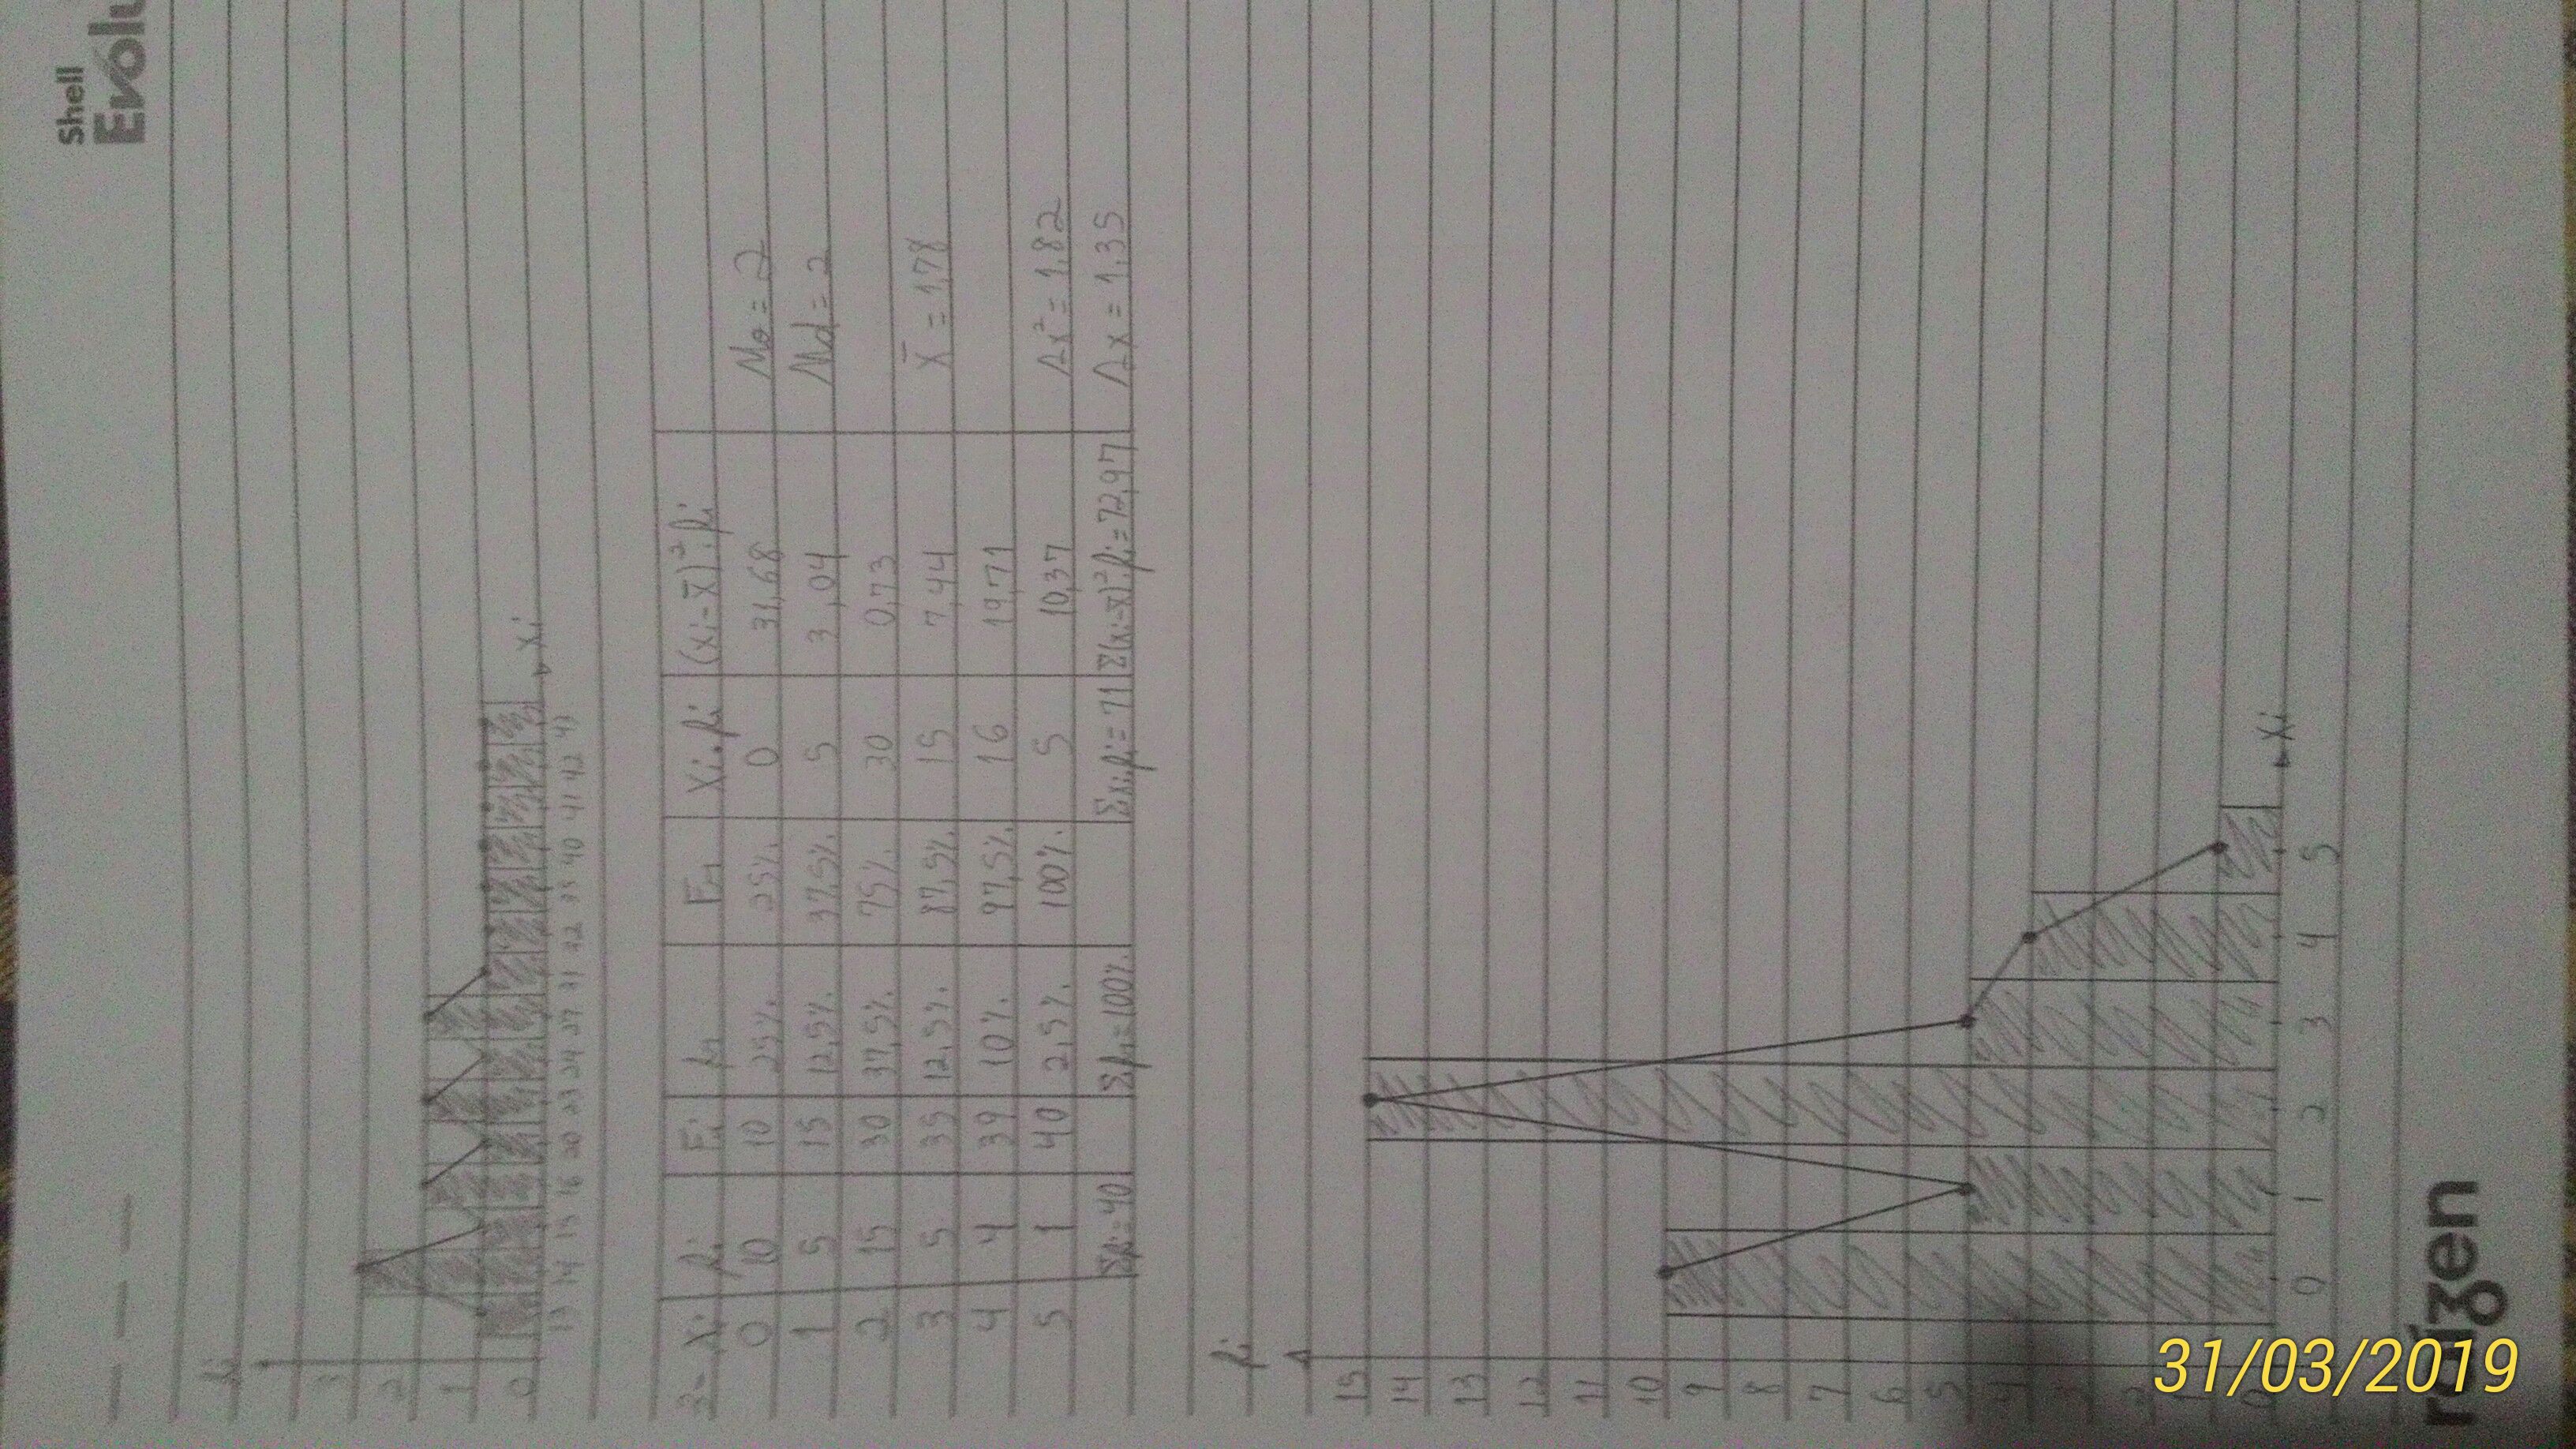 Shell
Evolu
fi
3
2
1
0
13 14 15 16 20 23 24 27 31 32 35 40 41 42 43
xi
3- Xi fi Fi fr Fr Xi.fi (xi-x̄)².fi
0 10 10 25% 25% 0 31,68 Mo = 2
1 5 15 12,5% 37,5% 5 3,04 Md = 2
2 15 30 37,5% 75% 30 0,73
3 5 35 12,5% 87,5% 15 7,44 x̄ = 1,78
4 4 39 10% 97,5% 16 19,71
5 1 40 2,5% 100% 5 10,37 Δx² = 1,82
Σfi=40 Σfr=100% Σxi.fi=71 Σ(xi-x̄)².fi=72,97 Δx = 1,35
fi
15
14
13
12
11
10
9
8
7
6
5
4
0
0 1 2 3 4 5
xi
raízen
31/03/2019